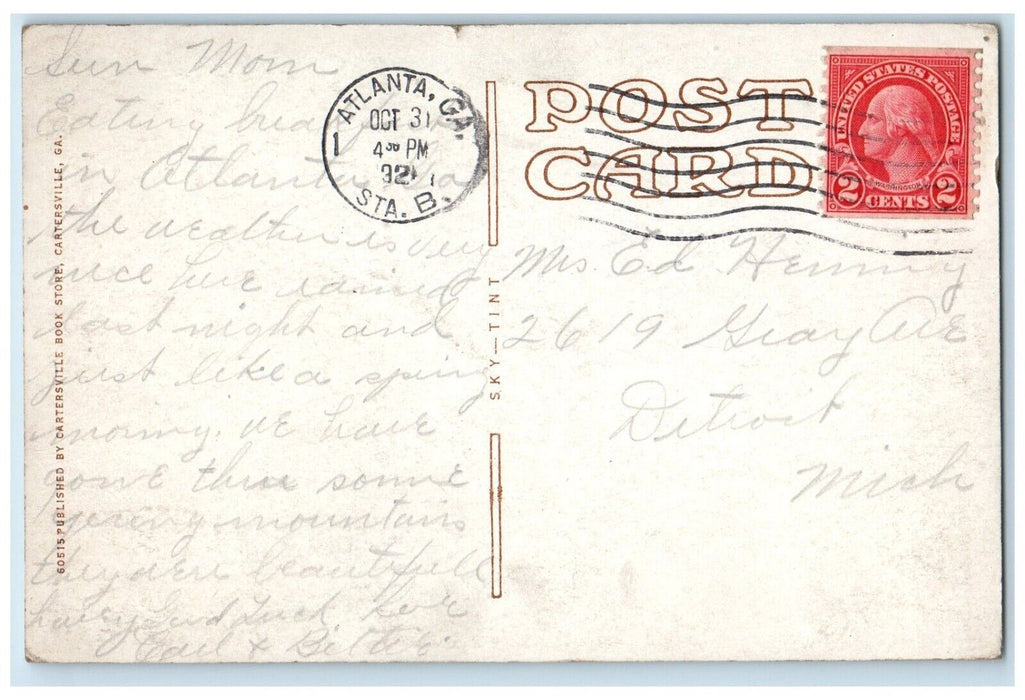 Sun Mom
Eating
in Atlanta
the weather is very
nice here rained
last night and
just like a spring
morning. we have
gone thru some
mountains
they are beautifull
having Good Luck
Earl &
60515 PUBLISHED BY CARTERSVILLE BOOK STORE, CARTERSVILLE, GA.
ATLANTA, GA.
1
OCT 31
4 30 PM
STA. B.
SKY—TINT
POST
CARD
UNITED STATES POSTAGE
WASHINGTON
2 CENTS 2
Mrs. Ed
2619 Gray AvE
Detroit
Mich